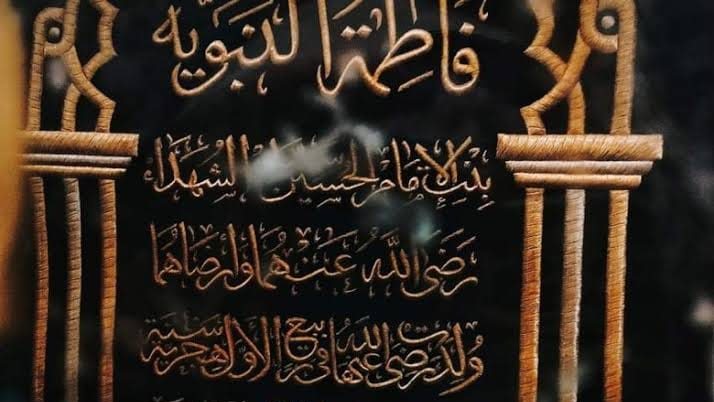 فاطمة النبوية
بنت الإمام الحسين الشهداء
رضى الله عنهما وأرضاهما
ولدت رضى الله عنها فى ربيع الأول هجرية سنة